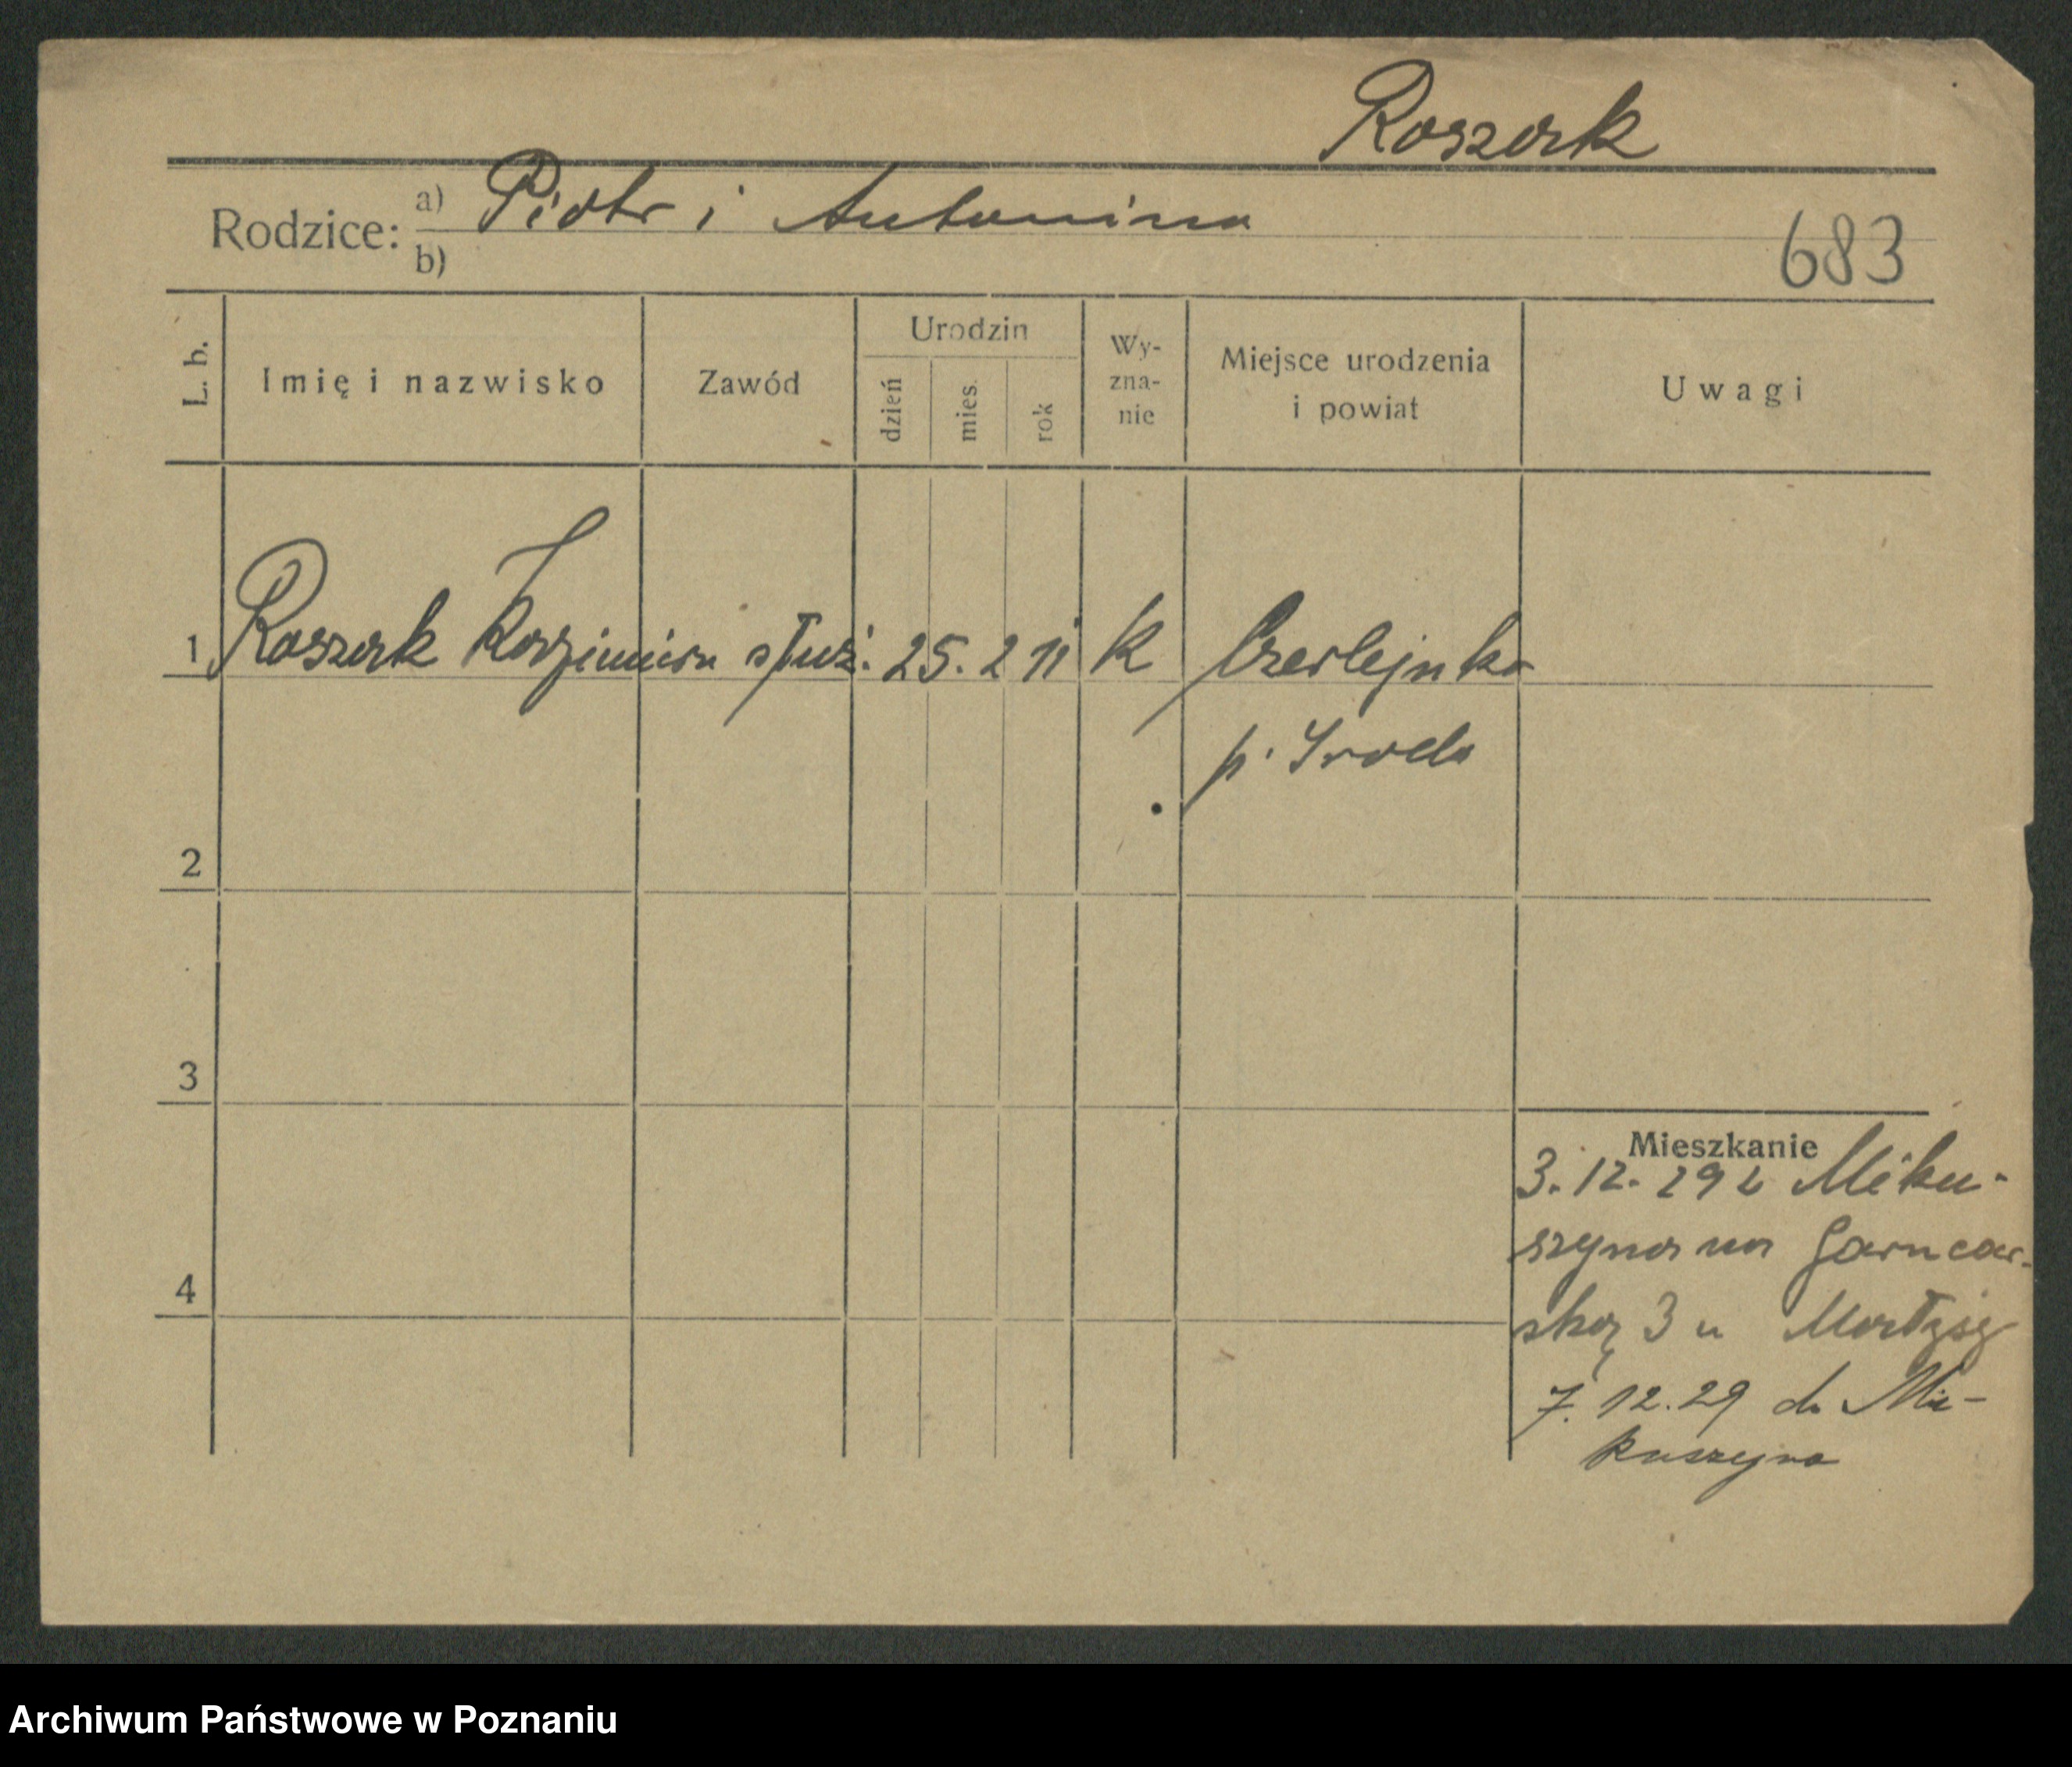 Roszak
Rodzice: a) Piotr i Antonina
b)
683
L. b. Imię i nazwisko Zawód Urodzin dzień mies. rok Wy-zna-nie Miejsce urodzenia i powiat Uwagi
1 Roszak Kazimiera służ. 25. 2 11 K Czerlejnko
p. Środa
2
3
Mieszkanie
3. 12. 29 z Miku-
szyna na Garncar-
4
ską 3 u
7. 12. 29 do Mi-
kuszyna
Archiwum Państwowe w Poznaniu